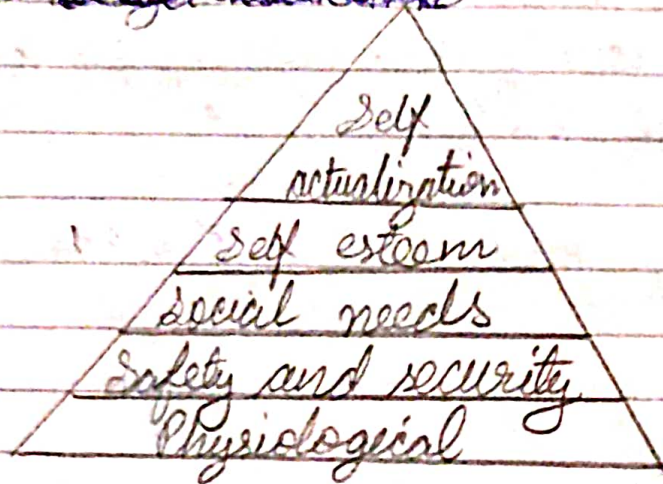 Self
actualization
Self esteem
Social needs
Safety and security
Physiological